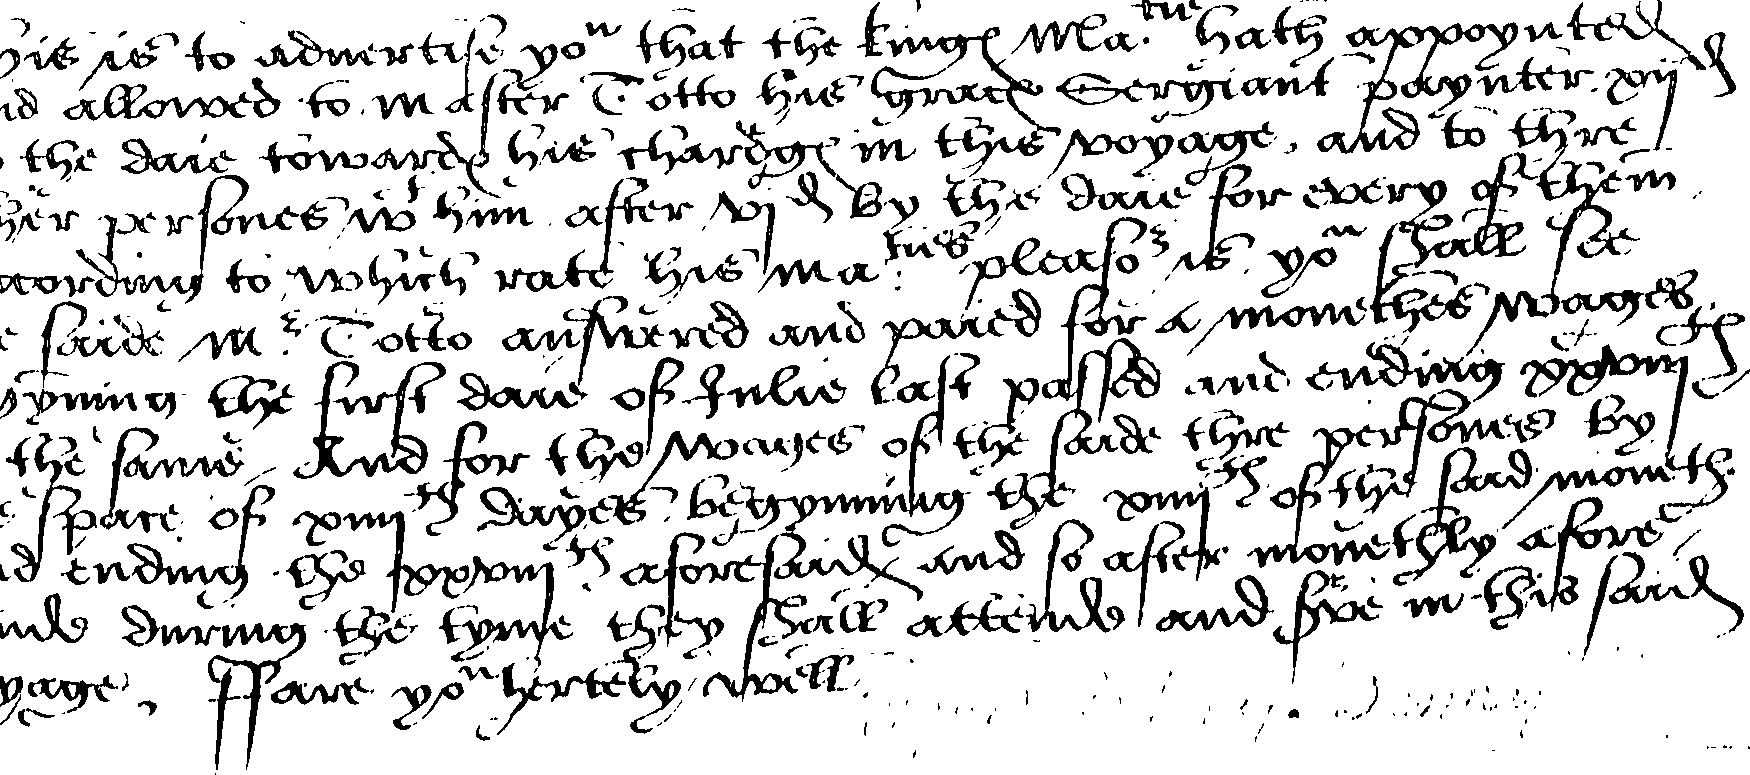 his is to aduertise yo^u that the king(es) Ma.^tie hath appoynted
nd allowed to master Totto his grac(es) Sergiant paynter xij^d
the daie toward(es) his chardg(es) in this voyage, and to thre
her persones w^t him after vj^d by the daie for every of them
ccording to which rate his ma.^ties pleaso^r is yo^u shall see
e saide m^r Totto answered and paied for a monethes wages
gynning the first daie of Julie last passed and ending xxviij^th
the same. And for the wages of the saide thre persones by
e space of xiiij^th dayes begynning the xiiij^th of the said moneth
nd ending the xxviij^th aforesaid, and so after monethly afore
ande during the tyme they shall attende and s(er)ve in this said
yage. ffare yo^u hertely well